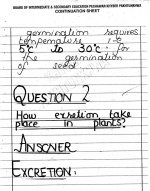 BOARD OF INTERMEDIATE & SECONDARY EDUCATION PESHAWAR KHYBER PAKHTUNKHWA
CONTINUATION SHEET
germination requires
tempenature
5°c to 30°c for
the germination
of seed
QUESTION 2
How exretion take
place in plants?
ANSWER
EXCRETION: